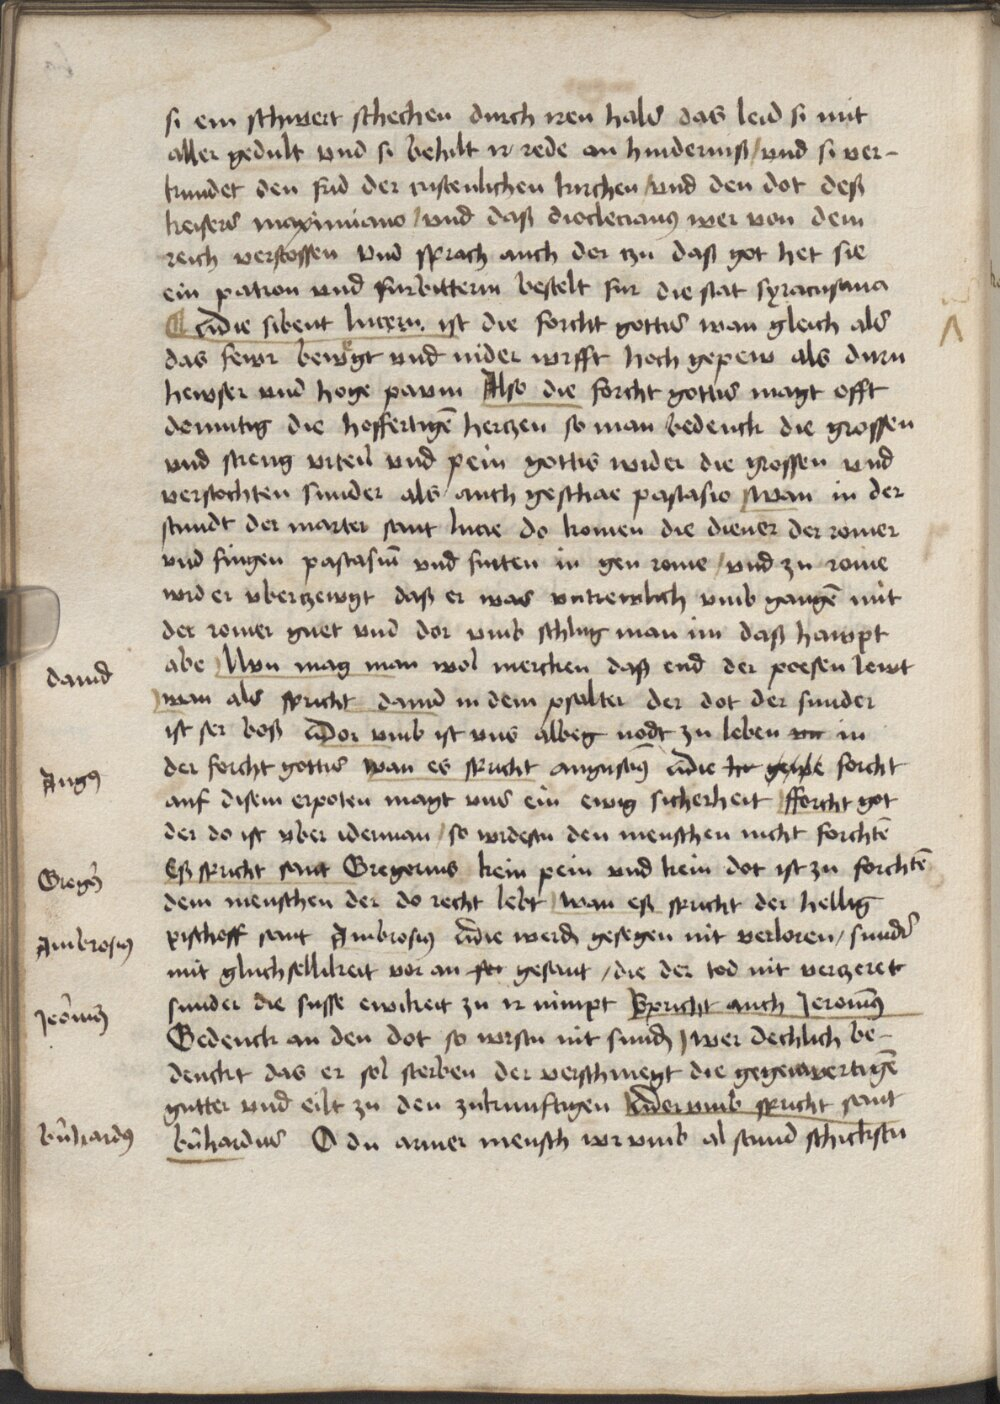 si ein schwert schechen durch iren hals das leid si mit
aller gedult vnd si behilt ir rede an hinderniß / vnd si ver-
kundet den frid der cristenlichen kirchen / vnd den dot deß
keisers maximiano / vnd daß dioclecianus wer von dem
reich verstossen vnd sprach auch der czu daß got het sie
ein patron vnd furbitterin bestelt fur die stat syracusana
Die sibent lucern ist die forcht gottis wan gleich als
das fewr bewegt vnd nider wirfft hoch gepew als durn
hewser vnd hoge pavm Also die forcht gottis magt offt
demutig die hoffertigē hertzen so man bedenck die grossen
vnd streng vrteil vnd pein gottis wider die grossen vnd
verstochten sunder als auch geschae pastasio wan in der
stundt der marter sant lucie do komen die diener der romer
vnd fingen pastasiū vnd furten in gen rome / vnd zu rome
wrd er vberczewgt daß er was vntrewlich vmb gangē mit
der romer guet vnd dor vmb schlug man im daß hawpt
abe Nvn mag man wol mercken daß end der poesen lewt
david
wan als spricht dauid in dem psalter der dot der sunder
ist ser boß Dor vmb ist vns albeg nodt zu leben in
Augꝰ
der forcht gottis wan es spricht augustinꝰ Die forcht
auf disem erpoten magt vns ein ewig sicherheit fforcht got
der do ist vber iderman / so wirdestu den menschen nicht forchtē
Gregoꝰ
Eß spricht sant Gregorius kein pein vnd kein dot ist zu forchtē
dem menschen der do recht lebt wan eß spricht der hellig
Ambrosiꝰ
pischoff sant Ambrosiꝰ Die werdē gesegen nit verloren / sundꝰ
mit gluchsellikeit vor an gesant / die der tod nit verczeret
Jeōnimꝰ
sunder die susse ewikeit zu ir nimpt Spricht auch Jeronimꝰ
Gedenck an den dot so wirstu nit sundē wer dechlich be-
denckt das er sol sterben der verschmegt die gegenwertigē
gutter vnd eilt zu den zukunftigen Dor vmb spricht sant
bn̄hardꝰ
bn̄hardus O du armer mensch wor vmb al stund schickstu